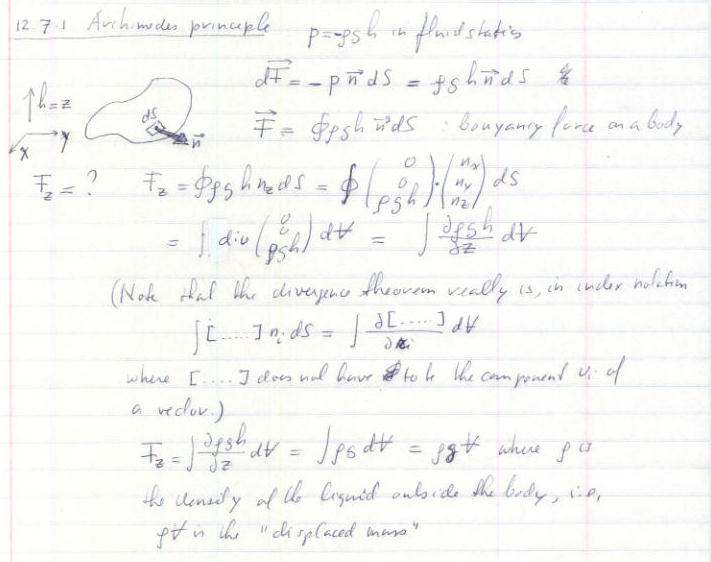 12.7.1 Archimedes principle p=-ρgh in fluid statics
dF⃗ = -p n⃗ dS = ρgh n⃗ dS
↑h=z dS n⃗ F⃗ = ∮ρgh n⃗ dS : bouyancy force on a body
x y
F_z = ? F_z = ∮ρgh n_z dS = ∮ (0 0 ρgh) · (n_x n_y n_z) dS
= ∫ div (0 0 ρgh) dV = ∫ ∂ρgh/∂z dV
(Note that the divergence theorem really is, in index notation
∫[.....] n_i dS = ∫ ∂[.....]/∂x_i dV
where [....] does not have to be the component v_i of
a vector.)
F_z = ∫ ∂ρgh/∂z dV = ∫ρg dV = ρgV where ρ is
the density of the liquid outside the body, i.e.,
ρV is the "displaced mass"